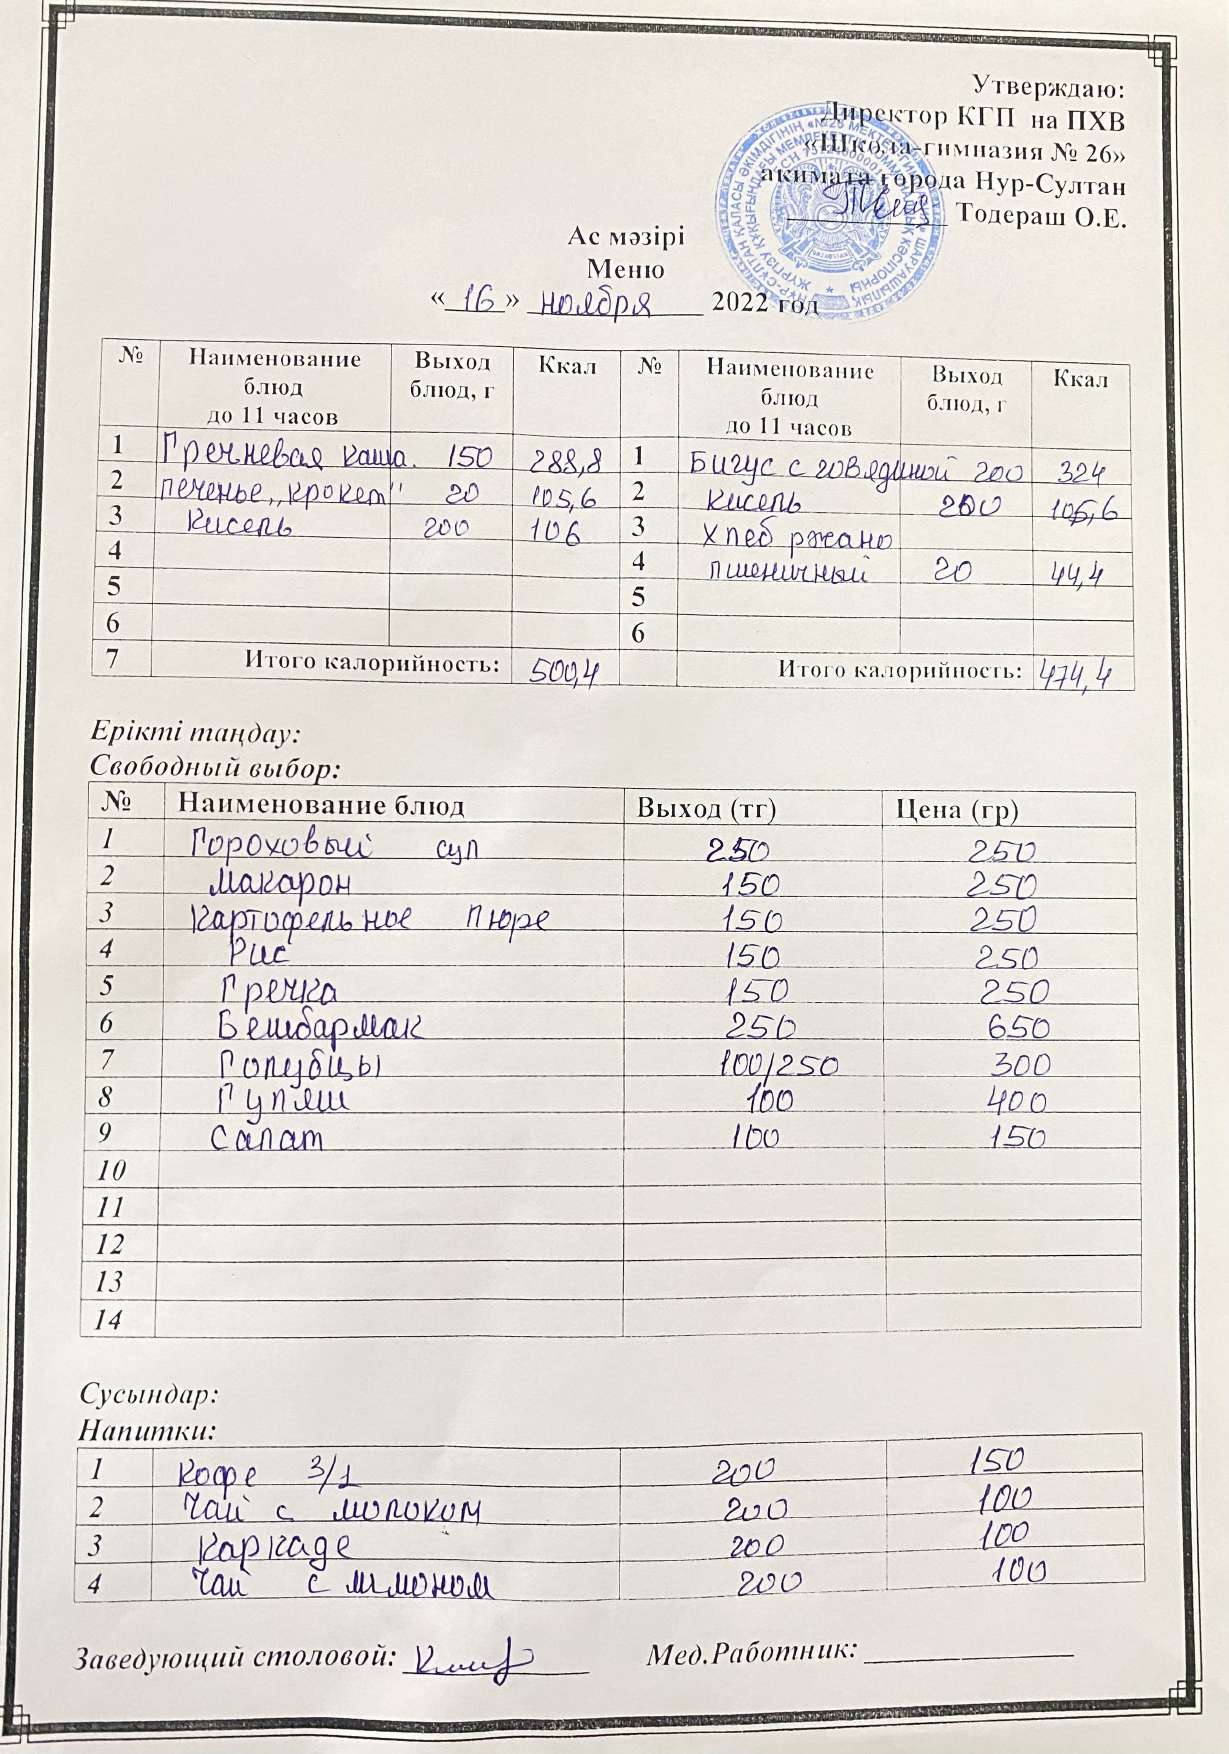 Утверждаю:
Директор КГП на ПХВ
«Школа-гимназия № 26»
акимата города Нур-Султан
Тодераш О.Е.
Ас мәзірі
Меню
«16» ноября 2022 год
№ Наименование блюд до 11 часов Выход блюд, г Ккал № Наименование блюд до 11 часов Выход блюд, г Ккал
1 Гречневая каша. 150 288,8 1 Бигус с говядиной 200 324
2 печенье „крокет" 20 105,6 2 Кисель 200 106,6
3 Кисель 200 106 3 Хлеб ржано
4 4 пшеничный 20 44,4
5 5
6 6
7 Итого калорийность: 500,4 Итого калорийность: 474,4
Ерікті таңдау:
Свободный выбор:
№ Наименование блюд Выход (тг) Цена (гр)
1 Гороховый суп 250 250
2 Макарон 150 250
3 Картофельное пюре 150 250
4 Рис 150 250
5 Гречка 150 250
6 Бешбармак 250 650
7 Голубцы 100/250 300
8 Гуляш 100 400
9 Салат 100 150
10
11
12
13
14
Сусындар:
Напитки:
1 Кофе 3/1 200 150
2 Чай с молоком 200 100
3 Каркаде 200 100
4 Чай с лимоном 200 100
Заведующий столовой: Мед.Работник: